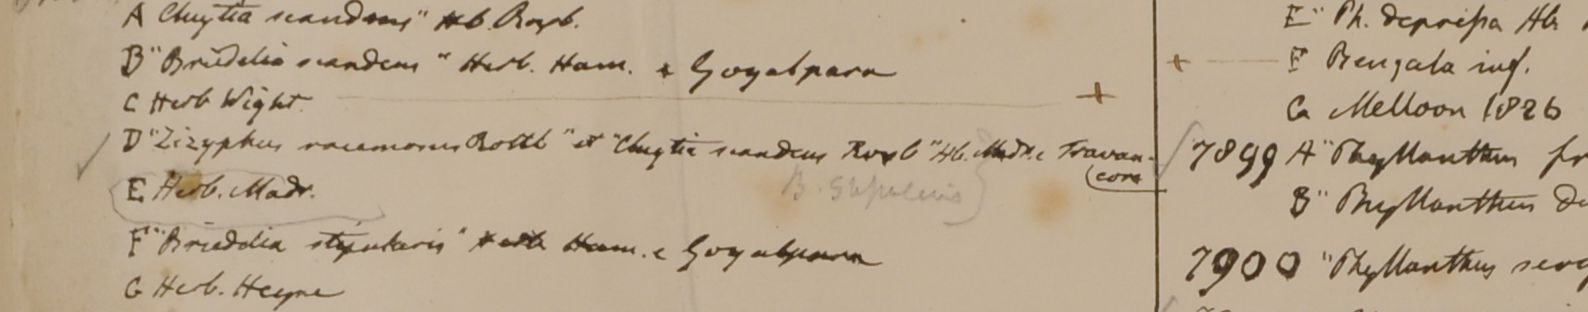 A Cluytia scandens" Hb. Roxb.
B "Briedelia scandens" Herb. Ham. e Goyalpara
C Herb Wight
D "Zizyphus racemosus Rottl" et "Cluytia scandens Roxb" Hb. Madr. e Travan-
core
E Herb. Madr.
B. stipularis
F "Briedelia stipularis" Herb. Ham. e Goyalpara
G Herb. Heyne
E" Ph. depressa Hb
F Bengala inf.
G Melloon 1826
7899 A "Phyllanthus
B" Phyllanthus
7900 "Phyllanthus